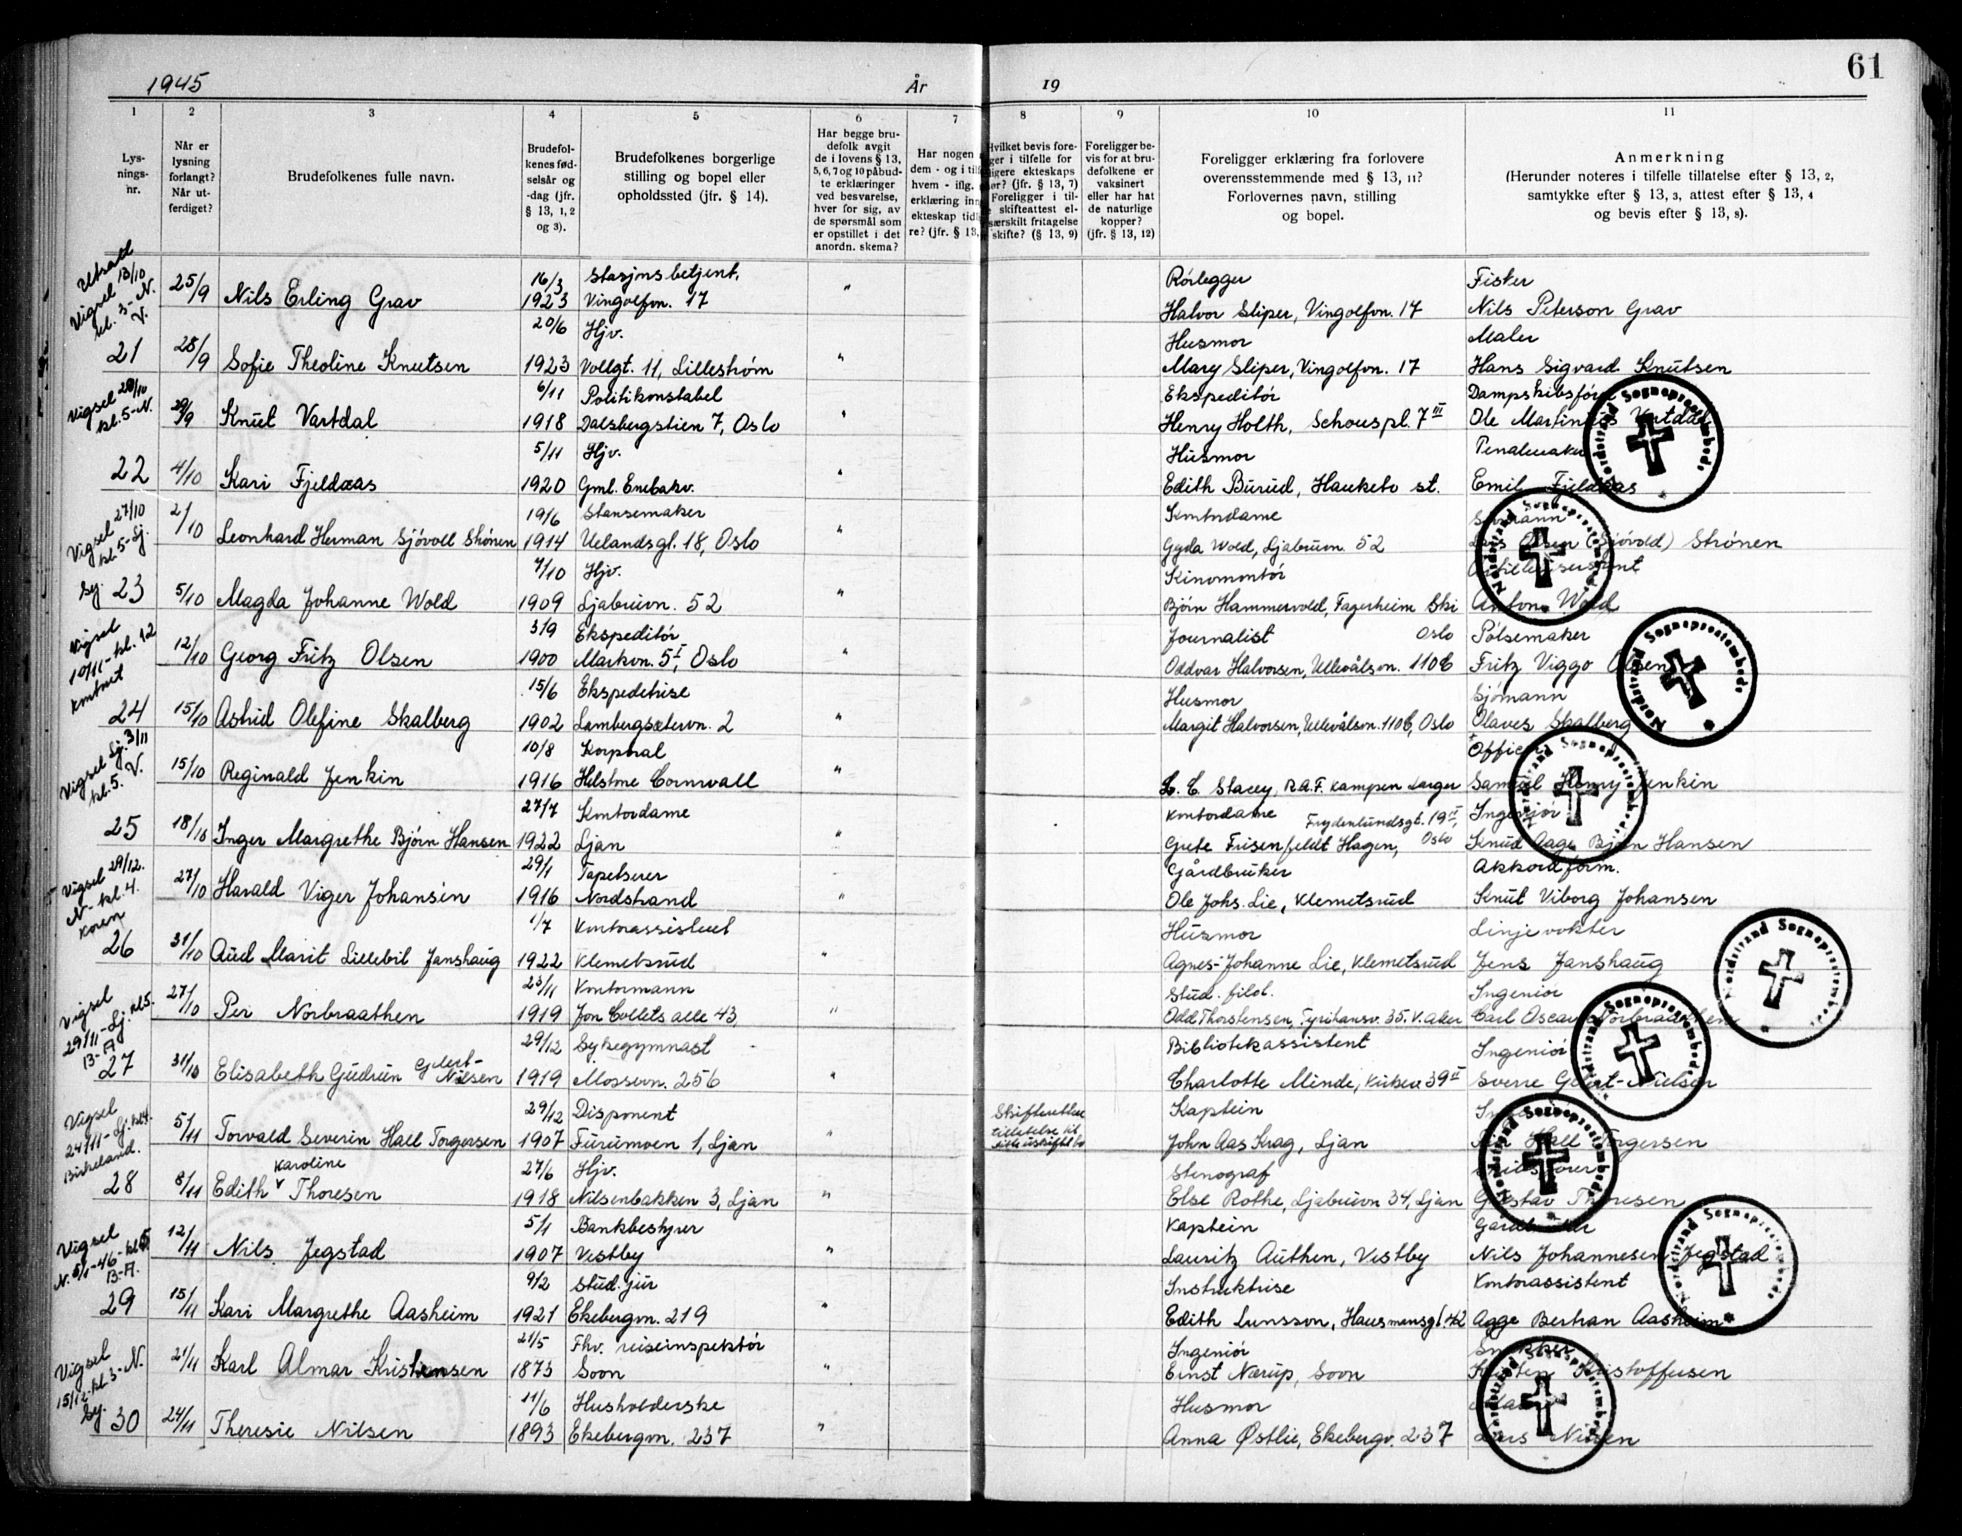 61
1945 År 19
1 2 3 4 5 6 7 8 9 10 11
Lys-
nings-
nr.
Når er
lysning
forlangt?
Når ut-
ferdiget?
Brudefolkenes fulle navn.
Brudefol-
kenes fød-
selsår og
-dag (jfr.
§ 13, 1, 2
og 3).
Brudefolkenes borgerlige
stilling og bopel eller
opholdssted (jfr. § 14).
Har begge bru-
defolk avgit
de i lovens § 13,
5, 6, 7 og 10 påbud-
te erklæringer
ved besvarelse,
hver for sig, av
de spørsmål som
er opstillet i det
anordn. skema?
Har nogen
dem - og i til
hvem - iflg.
erklæring inn
ekteskap tidl
re? (jfr. § 13,
Hvilket bevis fore-
ger i tilfelle for
ligere ekteskaps
ør? (jfr. § 13, 7)
Foreligger i til-
skifteattest el-
særskilt fritagelse
skifte? (§ 13, 9)
Foreligger be-
vis for at bru-
defolkene er
vaksinert
eller har hat
de naturlige
kopper?
(jfr. § 13, 12)
Foreligger erklæring fra forlovere
overensstemmende med § 13, 11?
Forlovernes navn, stilling
og bopel.
Anmerkning
(Herunder noteres i tilfelle tillatelse efter § 13, 2,
samtykke efter § 13, 3, attest efter § 13, 4
og bevis efter § 13, 8).
Vigsel 13/10
kl. 3-N.
V.
16/3 Stasjonsbetjent. Rørlegger Fisker
25/9 Nils Erling Grav 1923 Vingolfvn. 17 " Halvor Sliper, Vingolfvn. 17 Nils Peterson Grav
20/6 Hjv. Husmor Maler
21 28/9 Sofie Theoline Knutsen 1923 Vollgt. 11, Lillestrøm " Mary Sliper, Vingolfvn. 17 Hans Sigvard Knutsen
Vigsel 20/10
kl. 5-N.
6/11 Politikonstabel Ekspeditør
29/9 Knut Vartdal 1918 Dalsbergstien 7, Oslo " Henry Holth, Schouspl. 7 III Ole Martinius Vartdal
5/11 Hjv. Husmor
22 4/10 Kari Fjeldaas 1920 Gml. Enebakv. " Edith Burud, Hauketo st. Emil Fjeldaas
Vigsel 27/10
kl. 5-Lj.
19/6 Stansemaker Kontordame
2/10 Leonhard Herman Sjøvoll Strønen 1914 Uelandsgt. 18, Oslo " Gyda Wold, Ljabruvn. 52 Lars Olsen (Sjøvold) Strønen
7/10 Hjv. Kinomontør
23 5/10 Magda Johanne Wold 1909 Ljabruvn. 52 " Bjørn Hammervold, Fagerheim Ski Anton Wold
Vigsel
10/11-kl. 12
kontoret
3/9 Ekspeditør Journalist Oslo Pølsemaker
12/10 Georg Fritz Olsen 1900 Markvn. 5 I, Oslo " Oddvar Halvorsen, Ullevålsvn. 110 b Fritz Viggo Olsen
15/6 Ekspeditrise Husmor Sjømann
24 15/10 Astrid Olefine Skalberg 1902 Lambergsætervn. 2 " Margit Halvorsen, Ullevålsvn. 110 b, Oslo Olaves Skalberg
Vigsel Lj. 3/11
kl. 5. V.
10/8 Korporal Officer
15/10 Reginald Jenkin 1916 Helstone Cornwall " L. C. Stacey, R.A.F. Kampen Larger Samuel Henry Jenkin
27/7 Kontordame Kontordame Frydenlundsgt. 19 II, Ingeniør
25 18/10 Inger Margrethe Bjørn Hansen 1922 Ljan " Grete Frisenfeldt Hagen, Oslo Knud Aage Bjørn Hansen
Vigsel 29/12.
N-kl. 4.
Koren
29/1 Tapetserer Gårdbruker Akkordform.
27/10 Harald Viger Johansen 1916 Nordstrand " Ole Johs. Lie, Klemetsrud Knut Viborg Johansen
1/7 Kontorassistent Husmor Linjevokter
26 31/10 Aud Marit Lillebil Janshaug 1922 Klemetsrud " Agnes Johanne Lie, Klemetsrud Jens Janshaug
Vigsel
29/11-Lj. kl. 5.
B-A
23/11 Kontormann Stud. filol. Ingeniør
27/10 Per Norbraathen 1919 Jon Collets alle 43 " Odd Thorstensen, Tyrihansv. 35. V. Aker Carl Oscar Norbraathen
29/12 Sykegymnast Bibliotekassistent Ingeniør
27 31/10 Elisabeth Gudrun Gjelert-Nilsen 1919 Mossevn. 256 " Charlotte Minde, 39 II Sverre
Vigsel
24/11-Lj. kl. 4.
Birkeland.
29/12 Disponent Skifterettens Kaptein
5/11 Torvald Severin Hall Torgersen 1907 Furumoen 1, Ljan " tillatelse til John Aas Krag, Ljan Hall Torgersen
27/6 Hjv. Stenograf
28 8/11 Edith Karoline Thoresen 1918 Nilsenbakken 3, Ljan " Else Rothe, Ljabruvn 34, Ljan Gustav Thoresen
Vigsel
N. 5/1-46-kl. 5
B-A.
5/1 Bankbestyrer Kaptein Gårdbruker
12/11 Nils Jegstad 1907 Vestby " Lauritz Authen, Vestby Nils Johannesen Jegstad
9/2 Stud. jur Instruktrise Kontorassistent
29 15/11 Kari Margrethe Aasheim 1921 Ekebergvn. 219 " Edith Lunsson, Hausmannsgt. 42 Aage Bertran Aasheim
Vigsel
15/12-kl. 3-N.
21/5 Fhv. reiseinspektør Ingeniør Snekker
21/11 Karl Almar Kristensen 1873 Soon " Ernst Nærup, Soon
11/6 Husholderske Husmor
30 24/11 Theresie Nilsen 1893 Ekebergvn. 237 " Anna Østlie, Ekebergv. 237 Lars Nilsen
Nordstrand Sogneprestembede
Nordstrand Sogneprestembede
Nordstrand Sogneprestembede
Nordstrand Sogneprestembede
Nordstrand Sogneprestembede
Nordstrand Sogneprestembede
Nordstrand Sogneprestembede
Nordstrand Sogneprestembede
Nordstrand Sogneprestembede